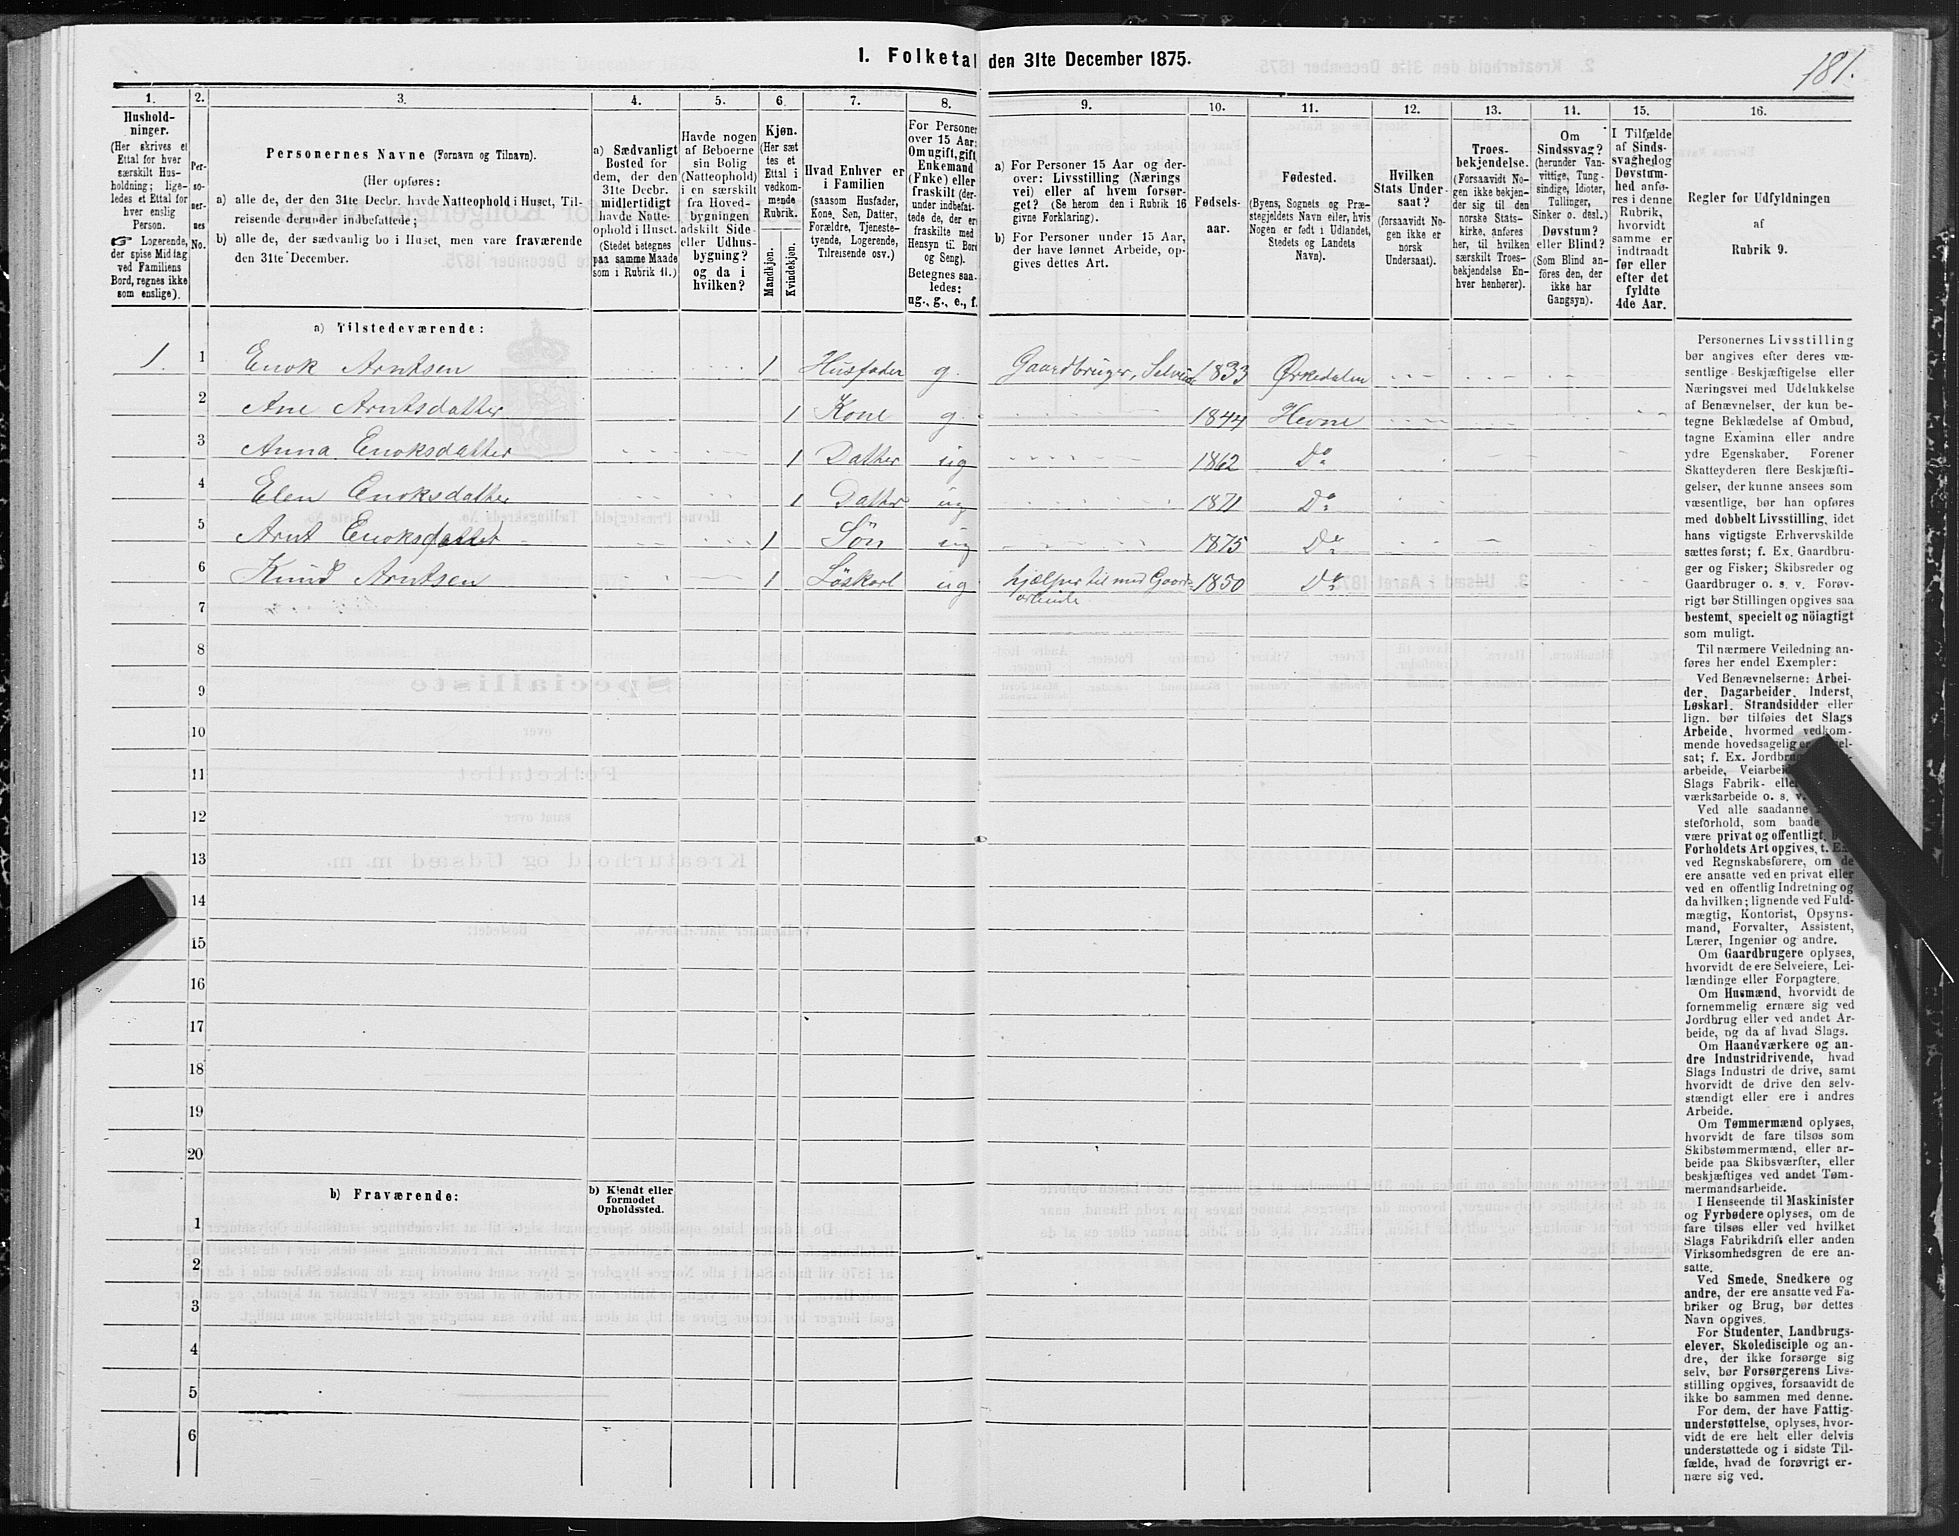 1. Folketal den 31te December 1875.
181.
1.
2.
3.
4.
5.
6.
7.
8.
9.
10.
11.
12.
13.
14.
15.
16.
Hushold-
ninger.
(Her skrives et
Ettal for hver
særskilt Hus-
holdning; lige-
ledes et Ettal for
hver enslig
Person.
☞ Logerende,
der spise Middag
ved Familiens
Bord, regnes ikke
som enslige).
Per-
so-
ner-
nes
No.
Personernes Navne (Fornavn og Tilnavn).
(Her opføres:
a) alle de, der den 31te Decbr. havde Natteophold i Huset, Til-
reisende derunder indbefattede;
b) alle de, der sædvanlig bo i Huset, men vare fraværende
den 31te December.
a) Sædvanligt
Bosted for
dem, der den
31te Decbr.
midlertidigt
havde Natte-
ophold i Huset.
(Stedet betegnes
paa samme Maade
som i Rubrik 11.)
Havde nogen
af Beboerne
sin Bolig
(Natteophold)
i en særskilt
fra Hoved-
bygningen
adskilt Side-
eller Udhus-
bygning?
og da i
hvilken?
Kjøn.
(Her sæt-
tes et
Ettal i
vedkom-
mende
Rubrik.
Mandkjøn.
Kvindekjøn.
Hvad Enhver er
i Familien
(saasom Husfader,
Kone, Søn, Datter,
Forældre, Tjeneste-
tyende, Logerende,
Tilreisende osv.)
For Personer
over 15 Aar:
Om ugift, gift,
Enkemand
(Enke) eller
fraskilt (der-
under indbefat-
tede de, der er
fraskilte med
Hensyn til Bord
og Seng).
Betegnes saa-
ledes:
ug., g., e., f.
a) For Personer 15 Aar og der-
over: Livsstilling (Nærings
vei) eller af hvem forsør-
get? (Se herom den i Rubrik 16
givne Forklaring).
b) For Personer under 15 Aar,
der have lønnet Arbeide, op-
gives dettes Art.
Fødsels-
aar.
Fødested.
(Byens, Sognets og Præ-
stegjeldets Navn eller, hvis
Nogen er født i Udlandet,
Stedets og Landets
Navn).
Hvilken
Stats Under-
saat?
(forsaavidt No-
gen ikke er
norsk
Undersaat).
Troes-
bekjendelse.
(Forsaavidt No-
gen ikke bekjen-
der sig til den
norske Stats-
kirke, anføres
her, til hvilken
særskilt Troes-
bekjendelse En-
hver henhører).
Om
Sindssvag?
(herunder Van-
vittige, Tung-
sindige, Idioter,
Tullinger,
Sinker o. desl.)
Døvstum?
eller Blind?
(Som Blind an-
føres den, der
ikke har
Gangsyn).
I Tilfælde
af Sinds-
svaghed og
Døvstum-
hed anfø-
res i denne
Rubrik,
hvorvidt
samme er
indtraadt
før eller
efter det
fyldte
4de Aar.
Regler for Udfyldningen
af
Rubrik 9.
a) Tilstedeværende:
1. 1 Enok Arntsen 1 Husfader g. Gaardbruger, Selveier 1833 Ørkedalen
2 Ane Arntsdatter 1 Kone g. 1844 Hevne
3 Anna Enoksdatter 1 Datter ug 1862 Do
4 Elen Enoksdatter 1 Datter ug 1871 Do
5 Arnt Enoksdatter 1 Søn ug 1875 Do
6 Knud Arntsen 1 Løskarl ug hjælper til med Gaards- 1850 Do
arbeide
7
8
9
10
11
12
13
14
15
16
17
18
19
20
b) Fraværende:
b) Kjendt eller
formodet
Opholdssted.
1
2
3
4
5
6
Personernes Livsstilling
bør angives efter deres væ-
sentlige Beskjæftigelse eller
Næringsvei med Udelukkelse
af Benævnelser, der kun be-
tegne Beklædelse af Ombud,
tagne Examina eller andre
ydre Egenskaber. Forener
Skatteyderen flere Beskjæfti-
gelser, der kunne ansees som
væsentlige, bør han opføres
med dobbelt Livsstilling, idet
hans vigtigste Erhvervskilde
sættes først; f. Ex. Gaardbru-
ger og Fisker; Skibsreder og
Gaardbruger o. s. v. Forøv-
rigt bør Stillingen opgives saa
bestemt, specielt og nöiagtigt
som muligt.
Til nærmere Veiledning an-
føres her endel Exempler:
Ved Benævnelserne: Arbei-
der, Dagarbeider, Inderst,
Løskarl, Strandsidder eller
lign. bør tilføies det Slags
Arbeide, hvormed vedkom-
mende hovedsagelig er
sat; f. Ex. Jordbrugs-
arbeide, Veiarbeide
Slags Fabrik- eller
værksarbeide o. s. v.
Ved alle saadanne
steforhold, som baade
være privat og offentligt,
Forholdets Art opgives, t. Ex.
ved Regnskabsførere, om de
ere ansatte ved en privat eller
ved en offentlig Indretning og
da hvilken; lignende ved Fuld-
mægtig, Kontorist, Opsyns-
mand, Forvalter, Assistent,
Lærer, Ingeniør og andre.
Om Gaardbrugere oplyses,
hvorvidt de ere Selveiere, Lei-
lændinge eller Forpagtere.
Om Husmænd, hvorvidt de
fornemmelig ernære sig ved
Jordbrug eller ved andet Ar-
beide, og da af hvad Slags.
Om Haandværkere og an-
dre Industridrivende, hvad
Slags Industri de drive, samt
hvorvidt de drive den selv-
stændigt eller ere i andres
Arbeide.
Om Tømmermænd oplyses,
hvorvidt de fare tilsøs som
Skibstømmermænd, eller ar-
beide paa Skibsværfter, eller
beskjæftiges ved andet Tøm-
mermandsarbeide.
I Henseende til Maskinister
og Fyrbødere oplyses, om de
fare tilsøs eller ved hvilket
Slags Fabrikdrift eller anden
Virksomhedsgren de ere an-
satte.
Ved Smede, Snedkere og
andre, der ere ansatte ved Fa-
briker og Brug, bør dettes
Navn opgives.
For Studenter, Landbrugs-
elever, Skoledisciple og an-
dre, der ikke forsørge sig
selv, bør Forsørgerens Livs-
stilling opgives, forsaavidt de
ikke bo sammen med denne.
For dem, der have Fattig-
understøttelse, oplyses, hvor-
vidt de ere helt eller delvis
understøttede og i sidste Til-
fælde, hvad de forøvrigt er-
nære sig ved.